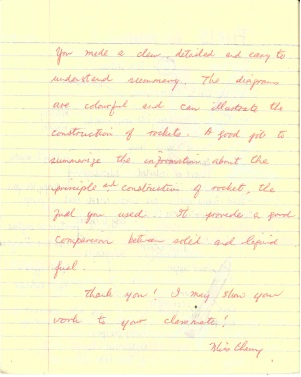 You made a clear, detailed and easy to
understand summary. The diagrams
are colourful and can illustrate the
construction of rockets. A good job to
summarize the information about the
principle and construction of rocket, the
fuel you used. It provides a good
comparison between solid and liquid
fuel.
Thank you! I may show your
work to your classmate!
Miss Cheng